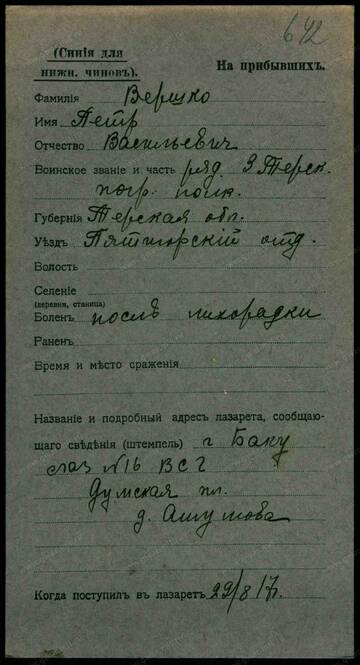 642
(Синія для
нижн. чиновъ).
На прибывшихъ.
Фамилія Вершко
Имя Петр
Отчество Васильевич
Воинское званіе и часть ряд. 3 Терск.
погр. полк.
Губернія Терская обл.
Уѣздъ Пятигорскій отд.
Волость
Селеніе
(деревня, станица)
Боленъ послѣ лихорадки
Раненъ
Время и мѣсто сраженія
Названіе и подробный адресъ лазарета, сообщаю-
щаго свѣдѣнія (штемпель) г Баку
лаз N16 ВСГ
Думская пл.
д. Ашумова
Когда поступилъ въ лазаретъ 29/8 17г.